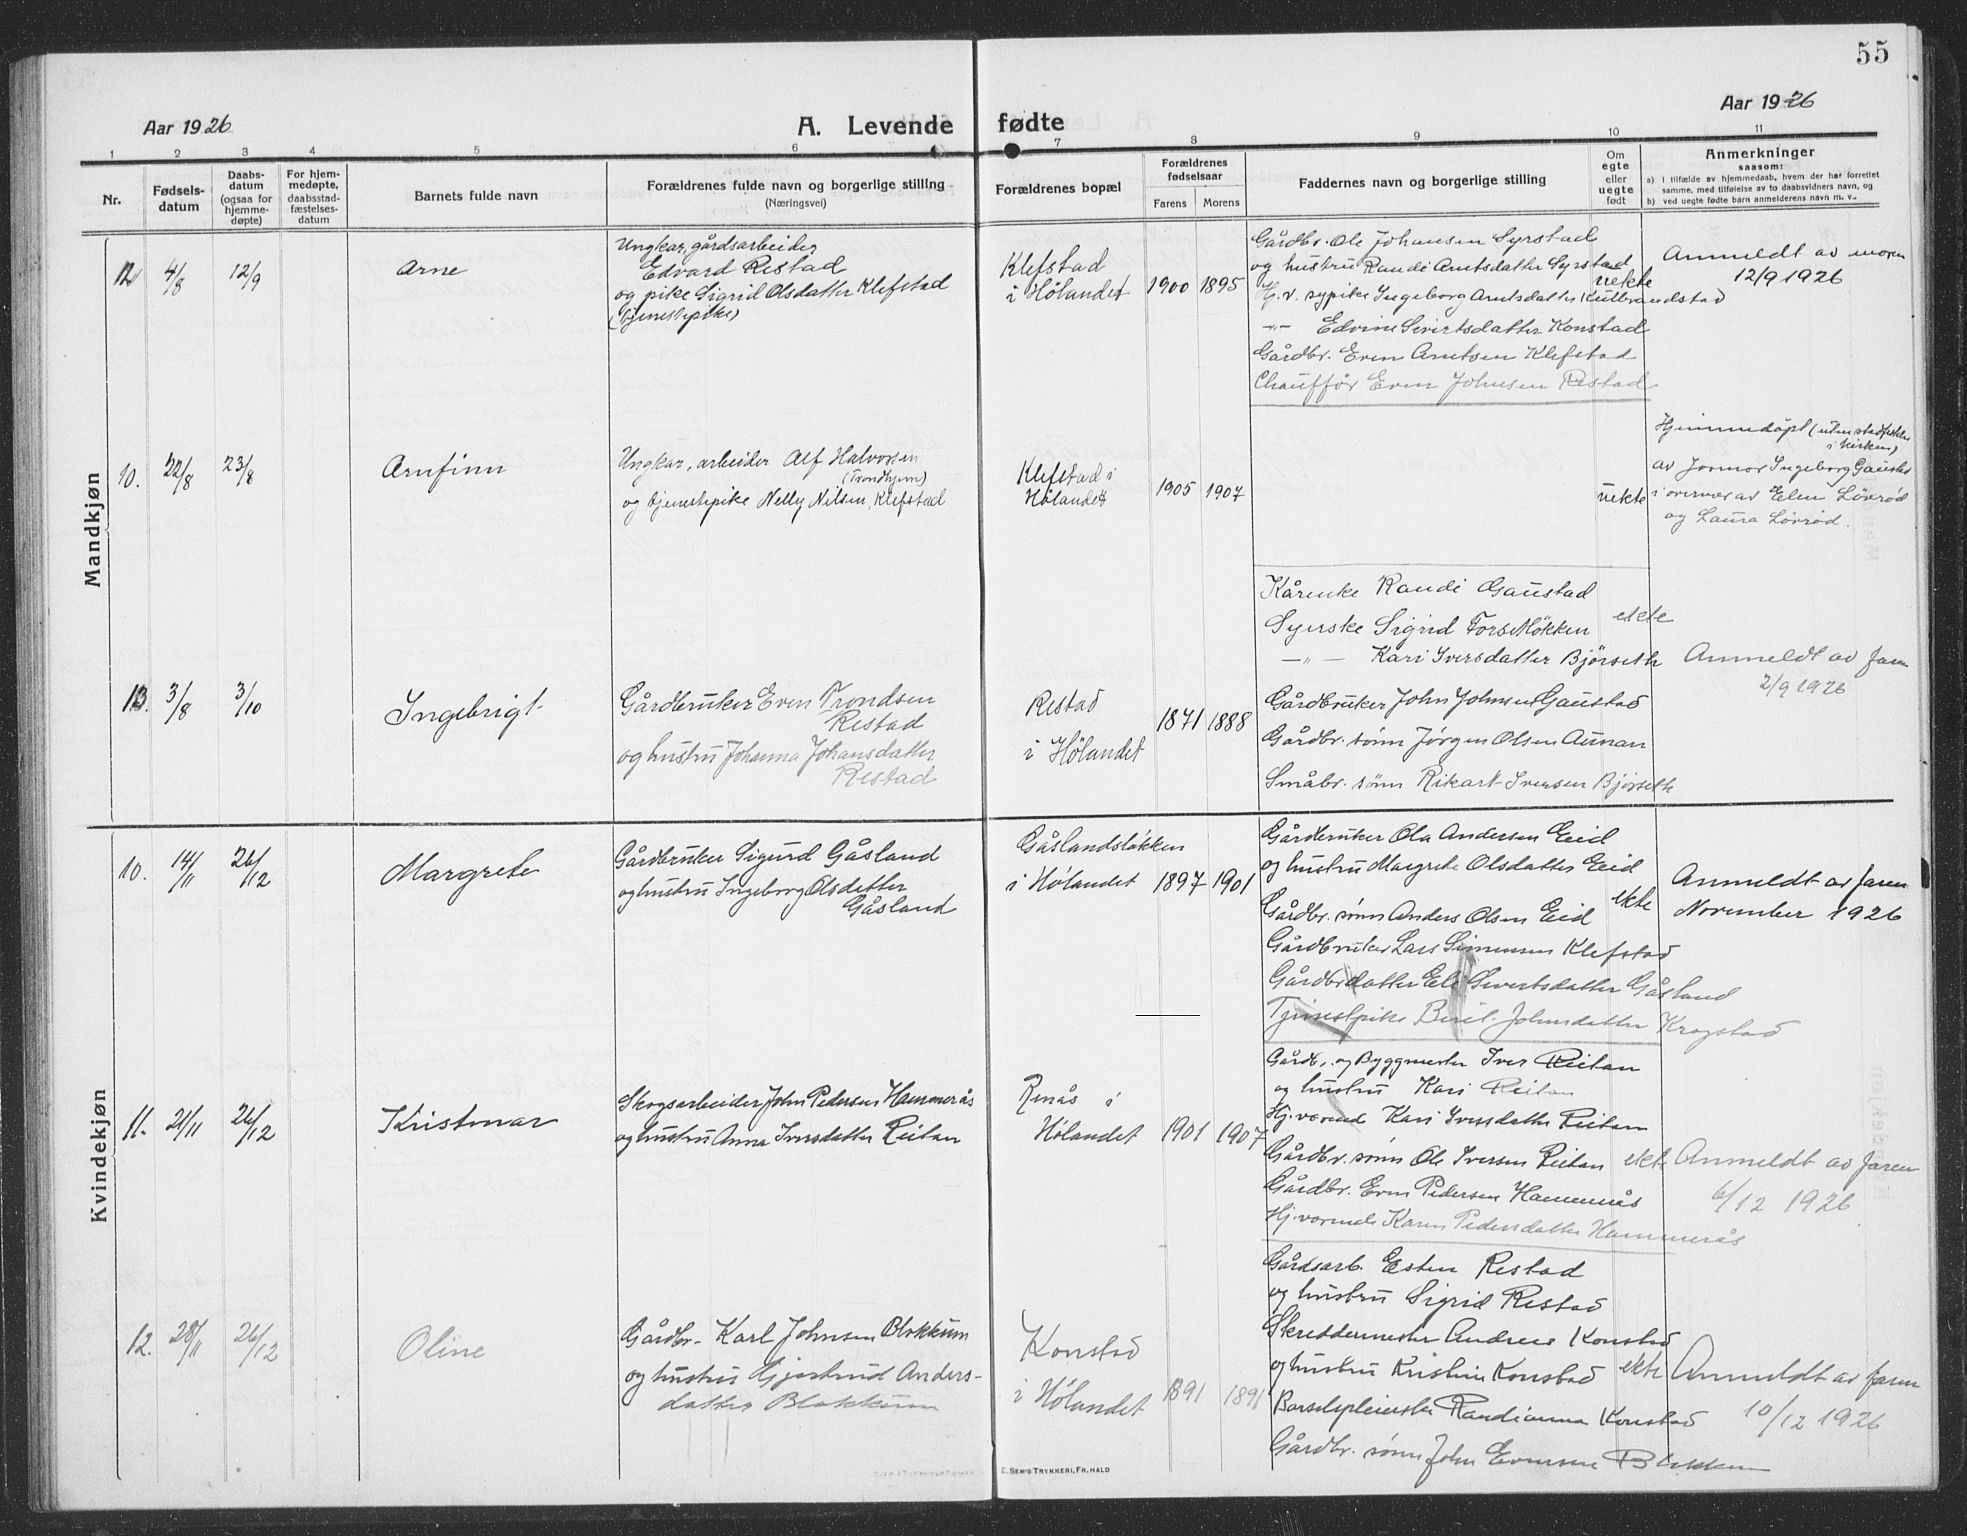 55
Aar 1926
A. Levende fødte
Aar 1926
1 2 3 4 5 6 7 8 9 10 11
Nr.
Fødsels-
datum
Daabs-
datum
(ogsaa for
hjemme-
døpte)
For hjem-
medøpte,
daabsstad-
fæstelses-
datum
Barnets fulde navn
Forældrenes fulde navn og borgerlige stilling
(Næringsvei)
Forældrenes bopæl
Forældrenes
fødselsaar
Farens Morens
Faddernes navn og borgerlige stilling
Om
egte
eller
uegte
født
Anmerkninger
saasom:
a) i tilfælde av hjemmedaab, hvem der har forrettet
samme, med tilføielse av to daabsvidners navn, og
b) ved uegte fødte barn anmelderens navn m. v..
Mandkjøn
12 4/8 12/9
Arne
Ungkar, gårdsarbeider
Edvard Restad
og pike Sigrid Olsdatter Klefstad
(tjenestepike)
Klefstad
i Hølandet
1900 1895
Gårdbr. Ole Johansen Syrstad
og hustru Randi Arntsdatter Syrstad
Hj. v. sypike Ingeborg Arntsdatter Kulbrandstad
-"- Edvine Sivertsdatter Konstad
Gårdbr. Even Arntsen Klefstad
Chauffør Even Johnsen Restad
uekte
Anmeldt av moren
12/9 1926
10. 22/8 23/8
Arnfinn
Ungkar, arbeider Alf Halvorsen
(Trondhjem)
og tjenestepike Nelly Nilsen, Klefstad
Klefstad i
Hølandet
1905 1907
uekte
Hjemmedøpt (uten stadfestelse
i kirken)
av Jormor Ingeborg Gaustad
i overvær av Elen Løvrød
og Laura Løvrød.
13. 3/8 3/10
Ingebrigt
Gårdbruker Even Trondsen
Restad
og hustru Johanna Johansdatter
Restad
Restad
i Hølandet
1871 1888
Randi Gaustad
Syerske Sigrid
-"- Kari Iversdatter Bjørseth
Gårdbruker John Johnsen Gaustad
Gårdbr. sønn Jørgen Olsen Aunan
Småbr. sønn Rikart Iversen Bjørseth
ekte
Anmeldt av faren
2/9 1926
Kvindekjøn
10. 14/11 26/12
Margrete
Gårdbruker Sigurd Gåsland
og hustru Ingeborg Olsdatter
Gåsland
Gåslandsløkken
i Hølandet
1897 1901
Gårdbruker Ola Andersen Eid
og hustru Margrete Olsdatter Eid
Gårdbr. sønn Anders Olsen Eid
Gårdbruker Lars Simensen Klefstad
Gårdbr datter Eli Sivertsdatter Gåsland
Tjenestpike Berit Johnsdatter Krogstad
ekte
Anmeldt av faren
November 1926
11. 21/11 26/12
Kristmar
Skogsarbeider John Pedersen Hammerås
og hustru Anna Iversdatter Reitan
Renås i
Hølandet
1901 1907
Gårdb. og Byggmester Iver Reitan
og hustru Kari Reitan
Hj. værend Kari Iversdatter Reitan
Gårdbr. sønn Ole Iversen Reitan
Gårdbr. Even Pedersen Hammerås
Hj. værende Karen Pedersdatter Hammerås
ekte
Anmeldt av faren
6/12 1926
12. 28/11 26/12
Oline
Gårdbr. Karl Johnsen Blokkum
og hustru Gjertrud Anders-
datter Blokkum
Konstad
i Hølandet
1891 1891
Gårdsarb. Esten Restad
og hustru Sigrid Restad
Skreddermester Andreas Konstad
og hustru Kristine Konstad
Barselspleierske Randianna Konstad
Gårdbr. sønn John Evensen Blokkum
ekte
Anmeldt av faren
10/12 1926
E. SEM'S TRYKKERI, FR. HALD